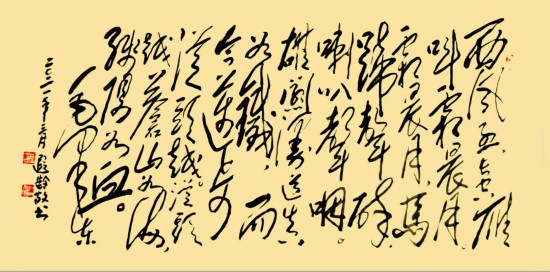 西风烈长空雁
叫霜晨月
霜晨月马
蹄声碎
喇叭声咽
雄关漫道真
如铁而
今迈步
从头越从头
越苍山如海
残阳如血。
毛泽东
二〇二一年三月 龄敬书